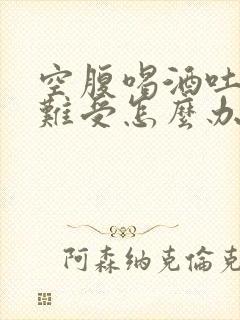 空腹喝酒吐
難受怎麼办
阿森纳克倫克